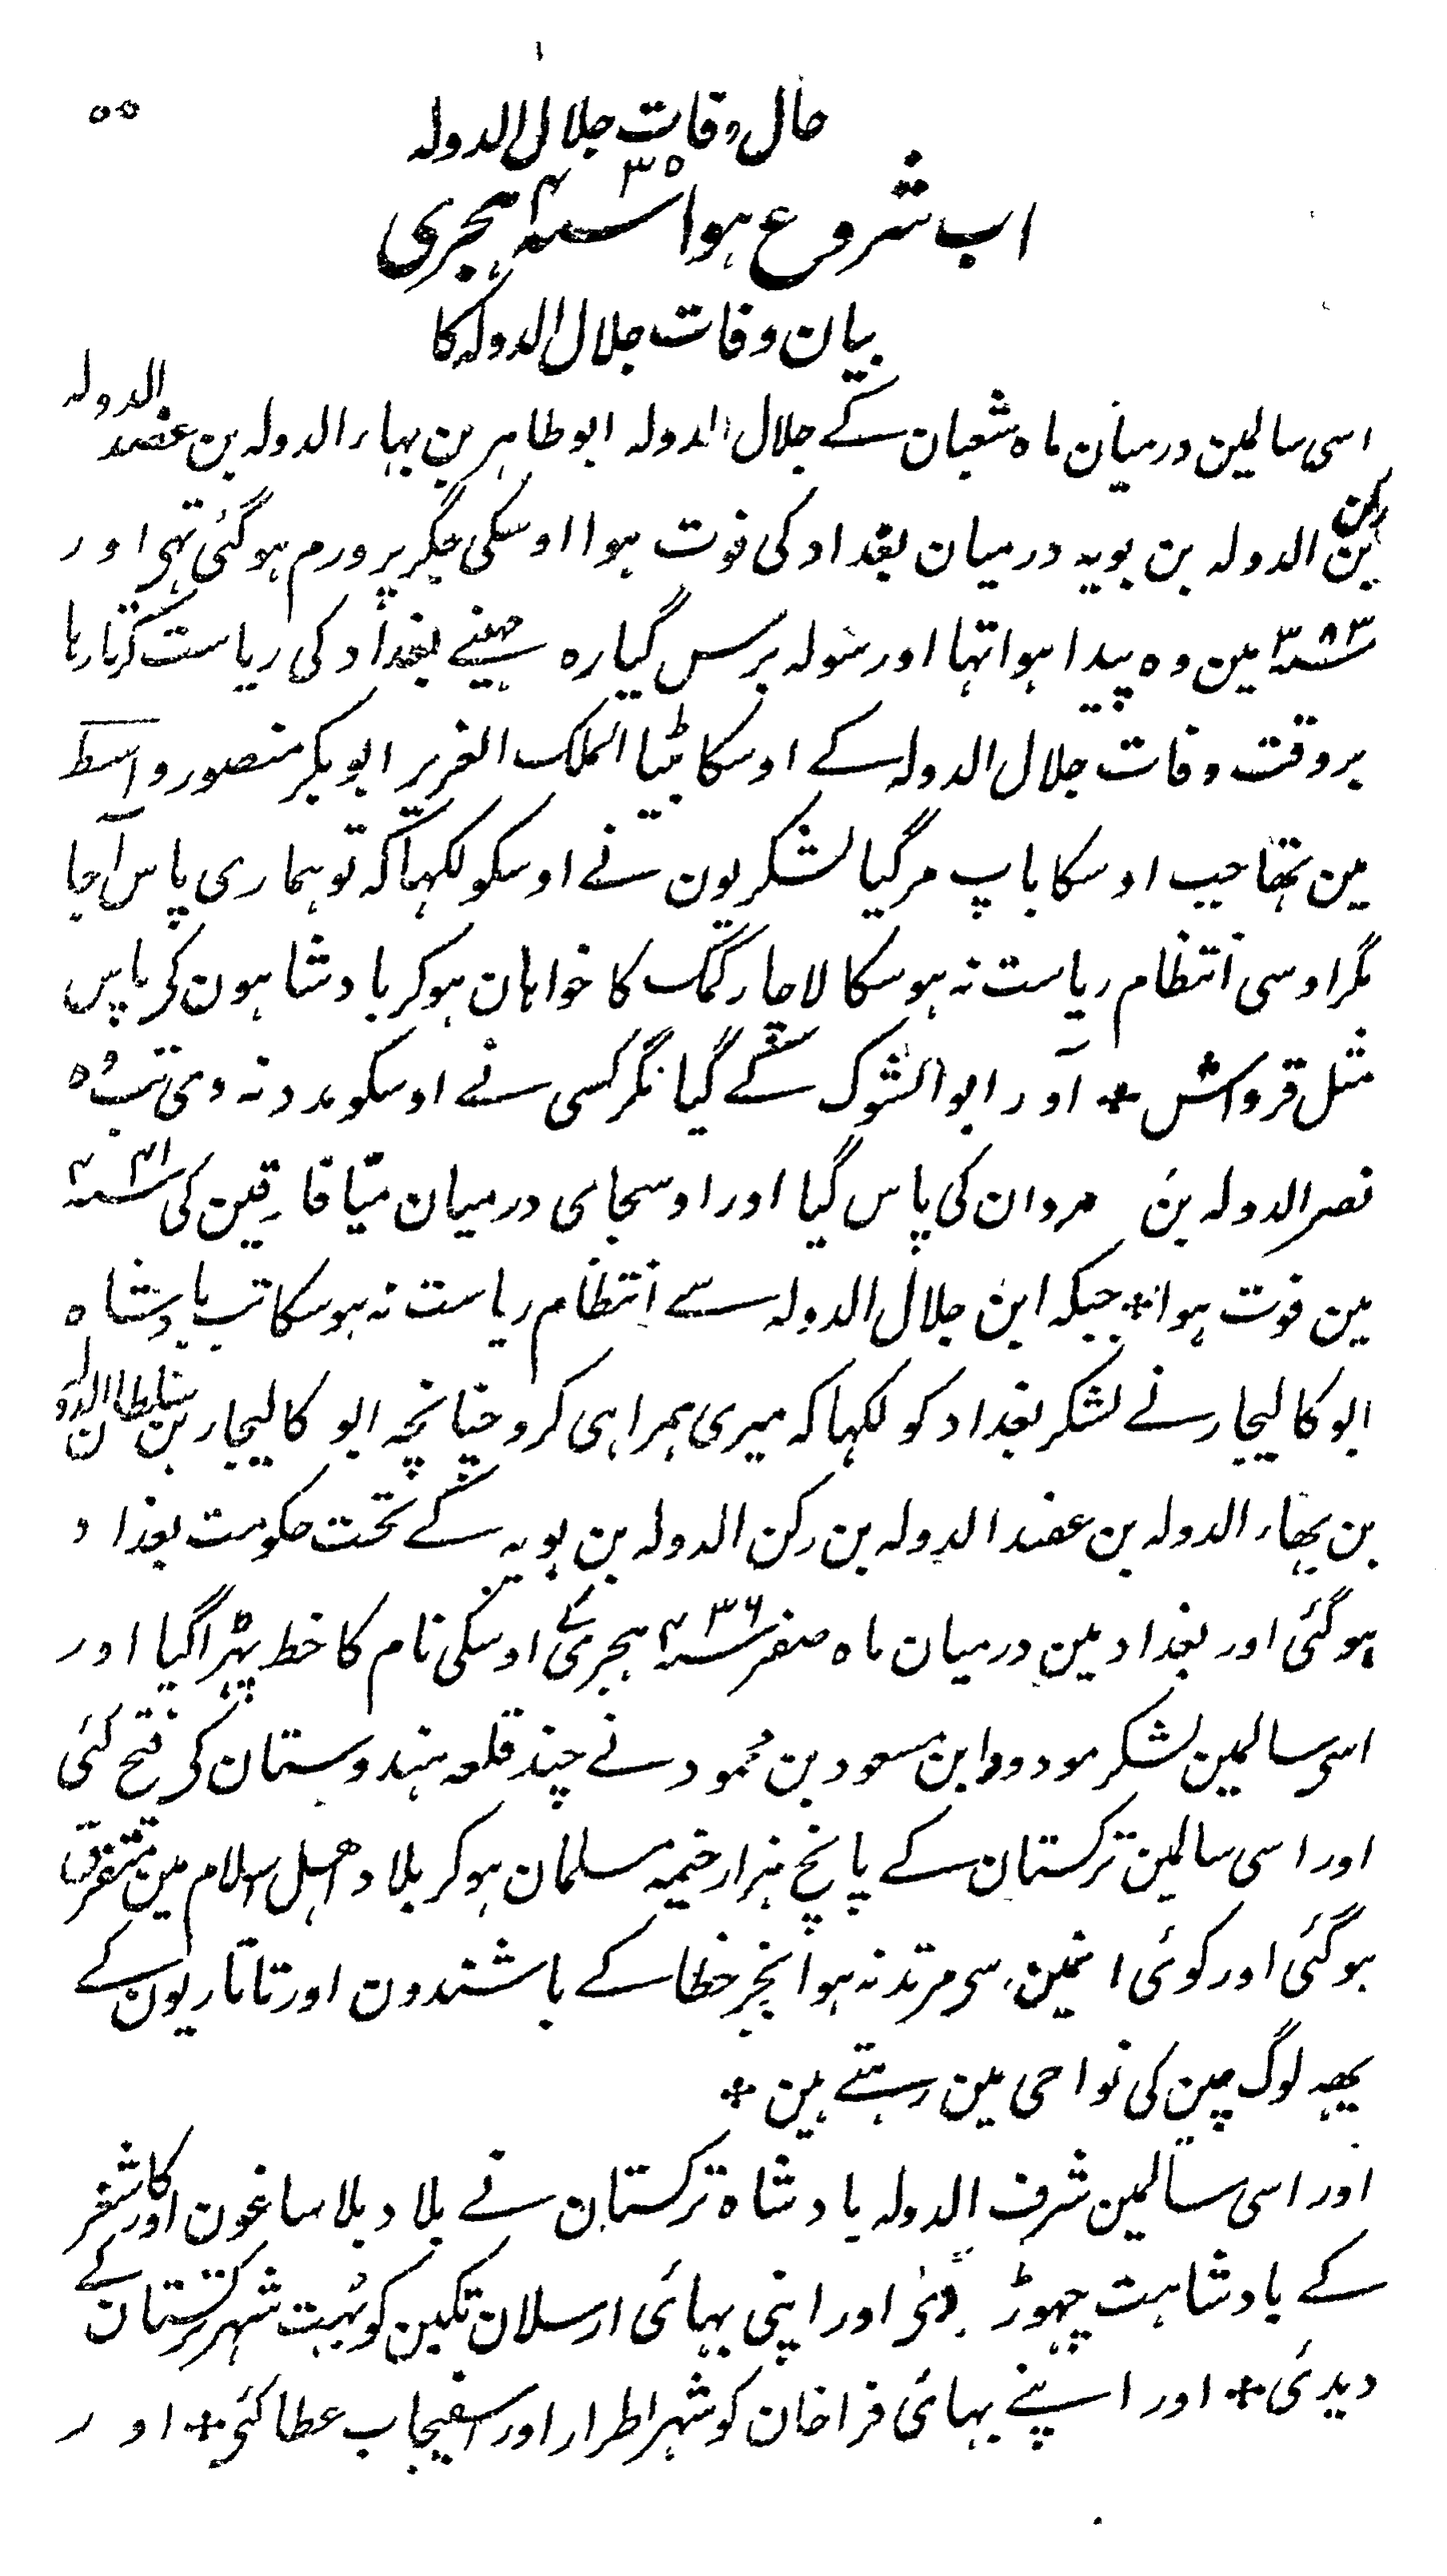 ۵۵
حال وفات جلال الدولہ
اب شروع ہوا سنہ ۴۳۵ ہجری
بیان وفات جلال الدولہ کا
اسی سالمین درمیان ماہ شعبان کے جلال الدولہ ابو طاہر بن بہاء الدولہ بن عضد الدولہ
بن رکن الدولہ بن بویہ درمیان بغداد کی فوت ہوا اوسکی جگر پر ورم ہوگئی تہی اور
سنہ ۳۸۳ مین وہ پیدا ہوا تہا اور سولہ برس گیارہ مہینے بغداد کی ریاست کرتا رہا
بروقت وفات جلال الدولہ کے اوسکا بیٹا الملک العزیز ابو بکر منصور واسط
مین تھا جب اوسکا باپ مرگیا لشکریون نے اوسکو لکہا کہ تو ہماری پاس آجا
مگر اوسی انتظام ریاست نہ ہوسکا لاچار کمک کا خواہان ہوکر بادشاہون کی پاس
مثل قرواش + اور ابو الشوک کے گیا مگر کسی نے اوسکو مدد نہ دی تب وہ
نصر الدولہ بن مروان کی پاس گیا اور اوسجای درمیان میّافارقین کی سنہ ۴۴۱
مین فوت ہوا + جبکہ ابن جلال الدولہ سے انتظام ریاست نہ ہوسکا تب بادشاہ
ابو کالیجار نے لشکر بغداد کو لکہا کہ میری ہمراہی کرو چنانچہ ابو کالیجار بن سلطان الدولہ
بن بھاء الدولہ بن عضد الدولہ بن رکن الدولہ بن بویہ کے تحت حکومت بغداد
ہوگئی اور بغداد مین درمیان ماہ صفر سنہ ۴۳۶ ہجری کے اوسکی نام کا خط پڑہا گیا اور
اسی سالمین لشکر مودود ابن مسعود بن محمود نے چند قلعہ ہندوستان کی فتح کئی
اور اسی سالمین ترکستان کے پانچ ہزار خیمہ مسلمان ہوکر بلاد اهل اسلام مین متفرق
ہوگئی اور کوئی انمین سی مرتد نہ ہوا بجز خطا کے باشندون اور تاتاریون کے
یھہ لوگ چین کی نواحی مین رہتے ہین +
اور اسی سالمین شرف الدولہ بادشاہ ترکستان نے بلاد بلاساغون اور کاشغر
کے بادشاہت چہوڑ دی اور اپنی بہائی ارسلان تکین کو بہت شہر ترکستان کے
دیدئی + اور اپنے بہائی قراخان کو شہر اطرار اور اسفیجاب عطا کئی + اور